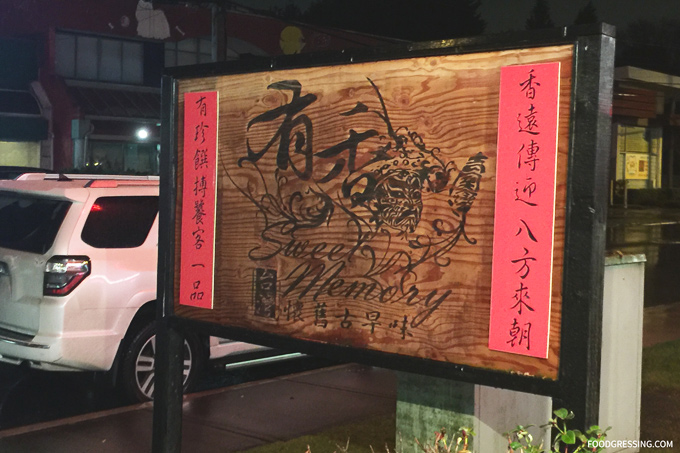 香遠傳迎八方來朝
有香
Sweet
Memory
懷舊古早味
有珍饌搏饕客一品
FOODGRESSING.COM